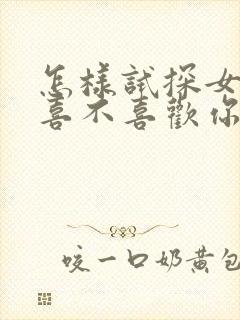 怎樣試探女
喜不喜歡你
咬一口奶黄包